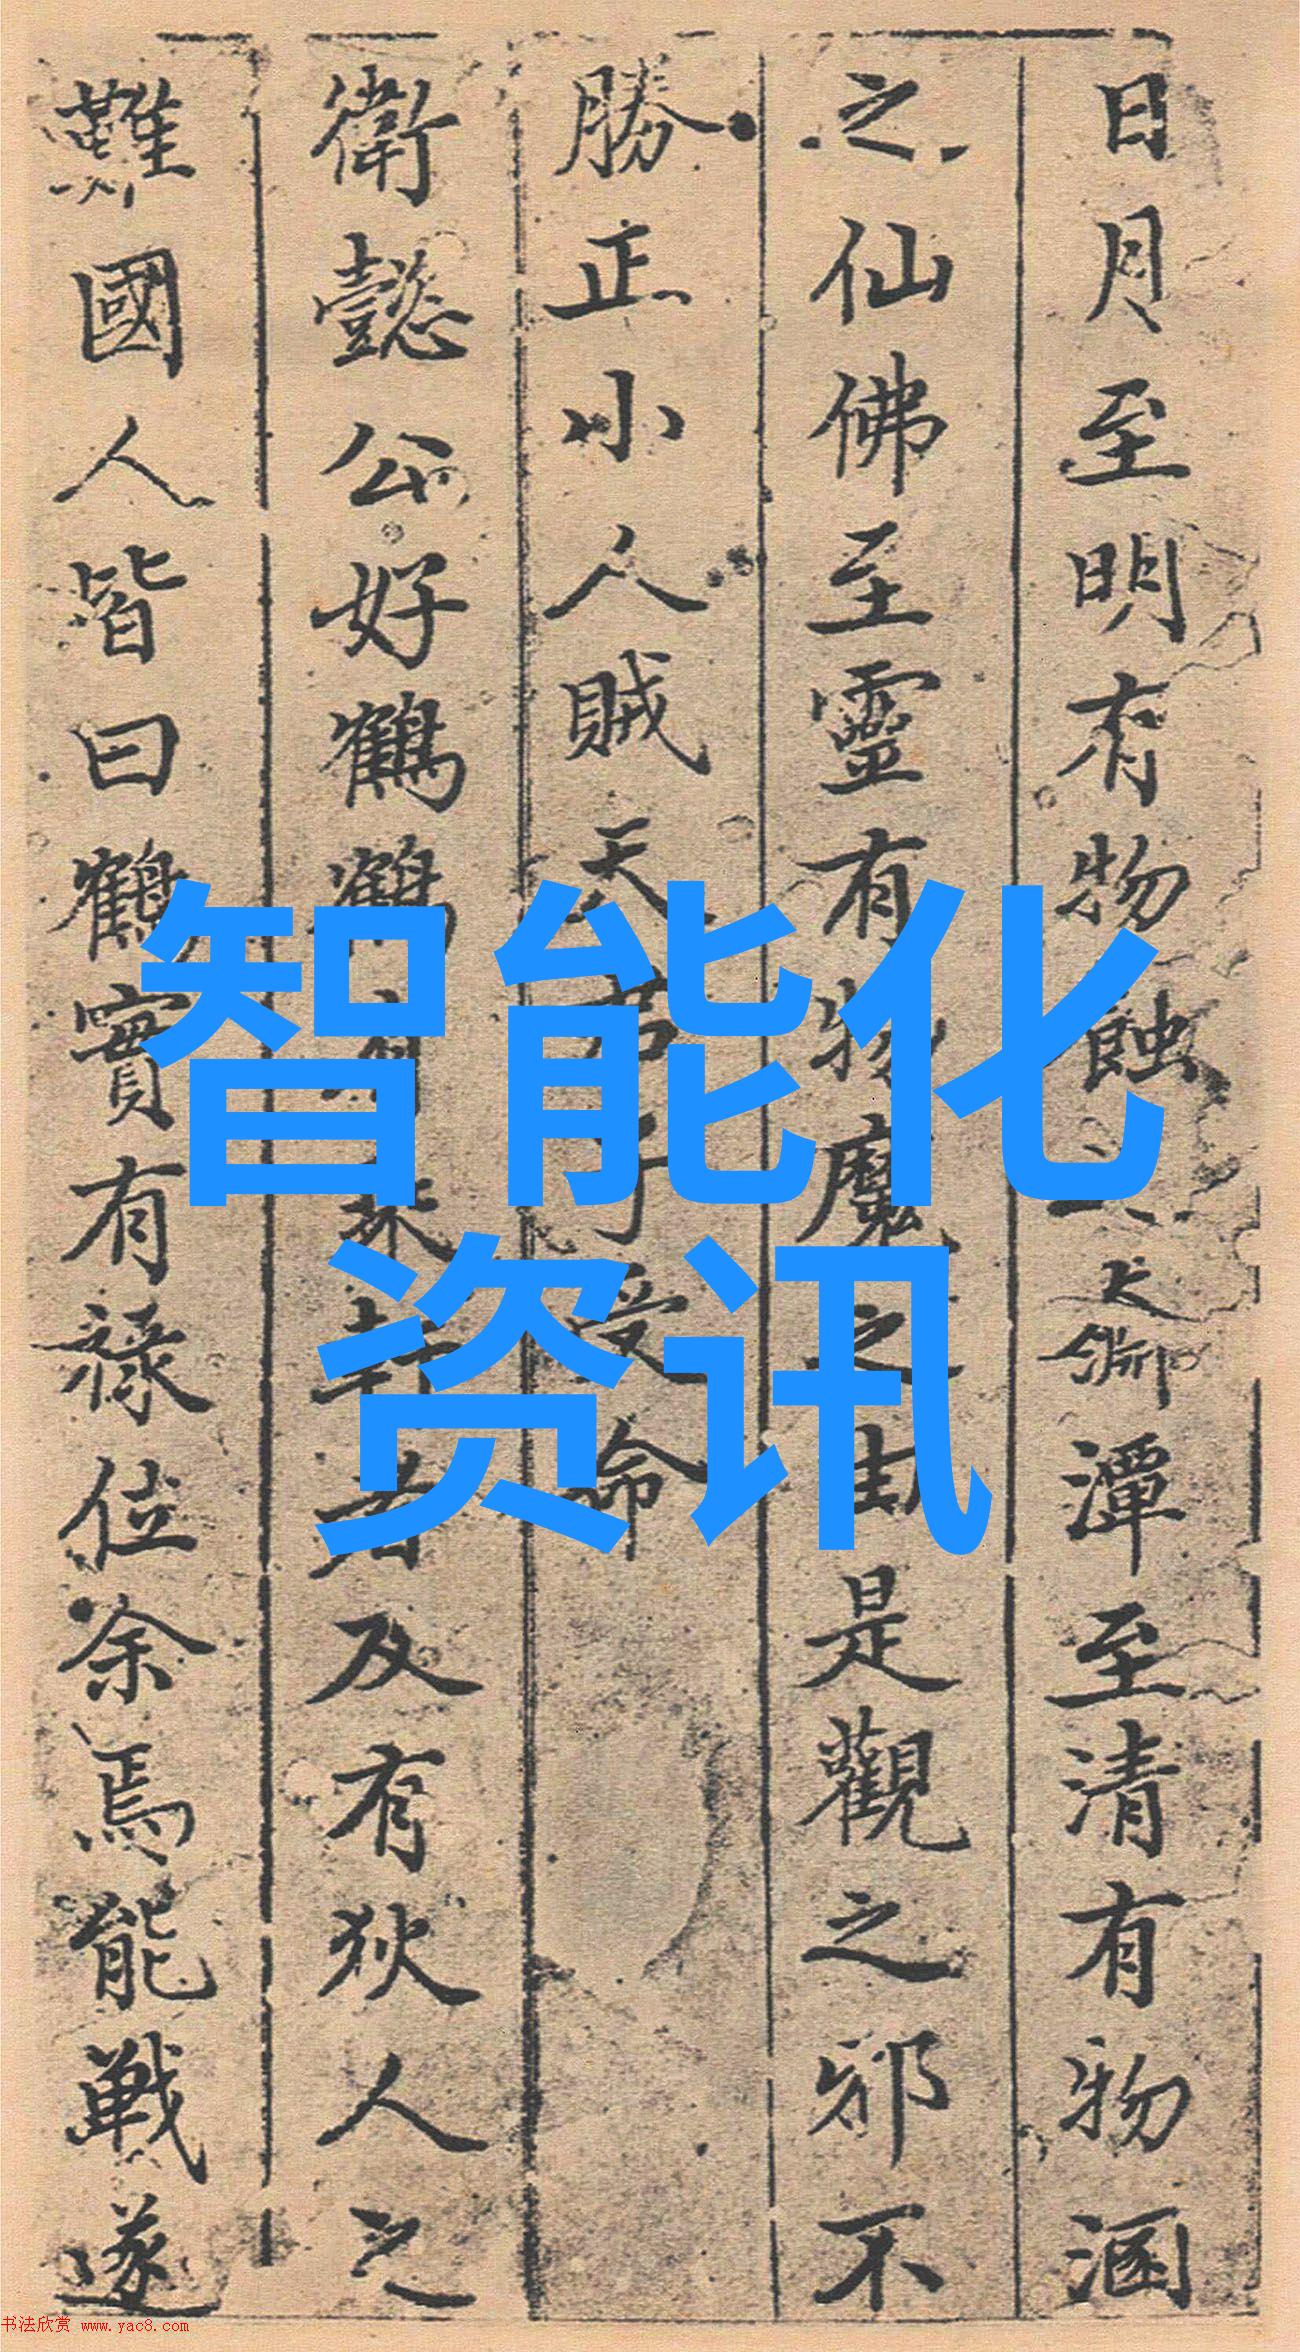 日月至明有物蝕之大淵潭至清有物溷
之仙佛至靈有物魔之由是觀之邪不
勝正小人賊天君子受命
衛懿公好鶴鶴有乘軒者及有狄人之
難國人皆曰鶴實有祿位余焉能戰遂
智能化
资讯
书法欣赏 www.yac8.com